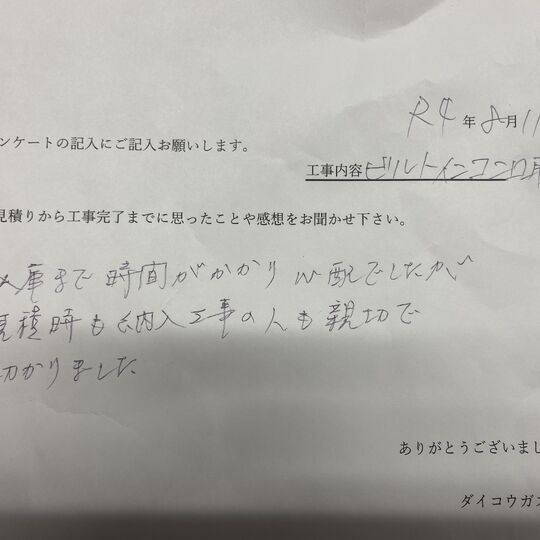 R4年8月11
ンケートの記入にご記入お願いします。
工事内容 ビルトインコンロ
見積りから工事完了までに思ったことや感想をお聞かせ下さい。
入庫まで時間がかかり心配でしたが
見積時も納入工事の人も親切で
助かりました
ありがとうございまし
ダイコウガス